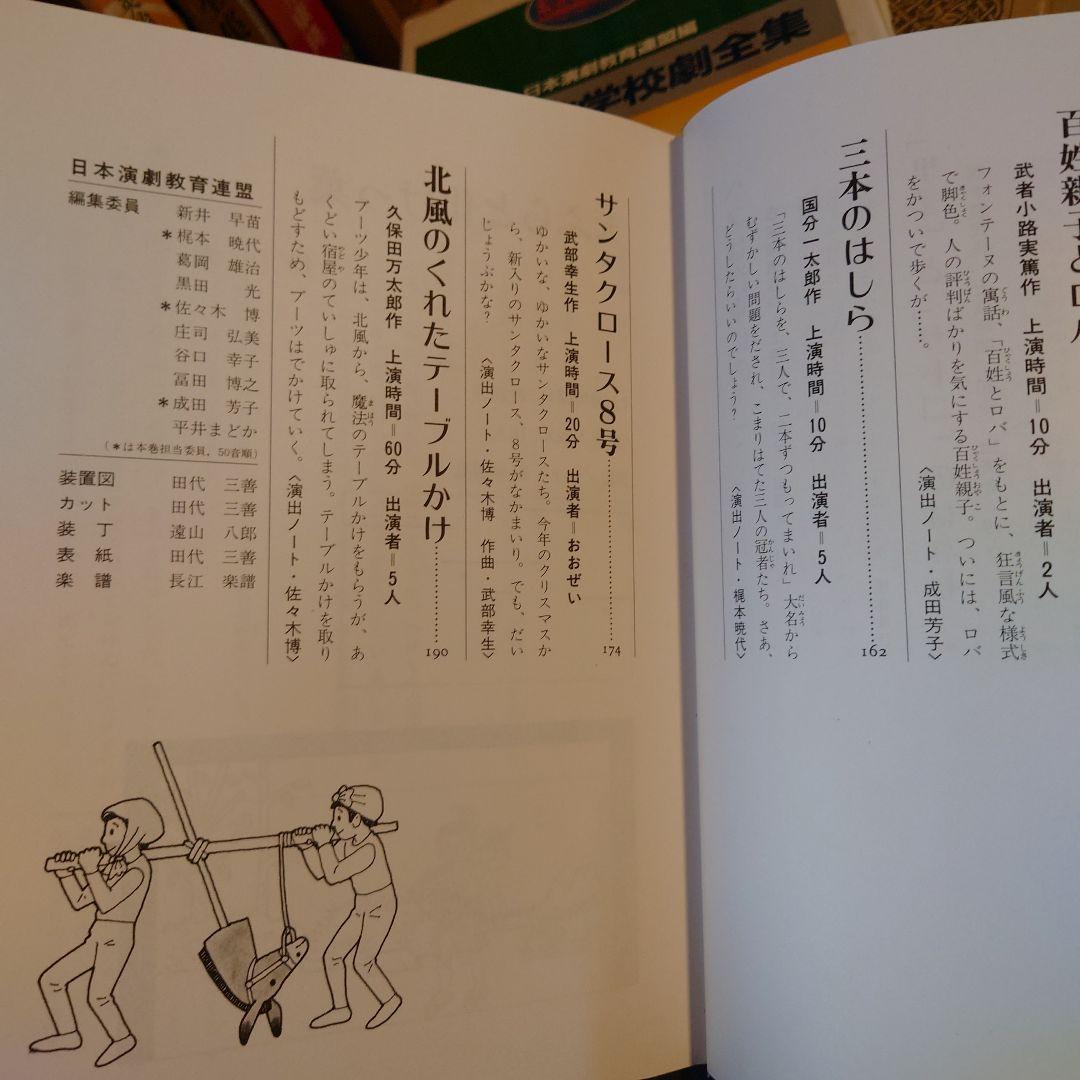 日本演劇教育連盟編
学校劇全集
武者小路実篤作 上演時間＝10分 出演者＝2人
フォンテーヌの寓話、「百姓とロバ」をもとに、狂言風な様式
で脚色。人の評判ばかりを気にする百姓親子。ついには、ロバ
をかついで歩くが……。
〈演出ノート・成田芳子〉
三本のはしら……………162
国分一太郎作 上演時間＝10分 出演者＝5人
「三本のはしらを、三人で、二本ずつもってまいれ」大名から
むずかしい問題をだされ、こまりはてた三人の冠者たち。さあ、
どうしたらいいのでしょう？
〈演出ノート・梶本暁代〉
サンタクロース8号……………174
武部幸生作 上演時間＝20分 出演者＝おおぜい
ゆかいな、ゆかいなサンタクロースたち。今年のクリスマスか
ら、新入りのサンタクロース、8号がなかまいり。でも、だい
じょうぶかな？
〈演出ノート・佐々木博 作曲・武部幸生〉
北風のくれたテーブルかけ……………190
久保田万太郎作 上演時間＝60分 出演者＝5人
ブーツ少年は、北風から、魔法のテーブルかけをもらうが、あ
くどい宿屋のていしゅに取られてしまう。テーブルかけを取り
もどすため、ブーツはでかけていく。〈演出ノート・佐々木博〉
日本演劇教育連盟
編集委員 新井 早苗
＊梶本 暁代
葛岡 雄治
黒田 光
＊佐々木 博
庄司 弘美
谷口 幸子
冨田 博之
＊成田 芳子
平井まどか
（＊は本巻担当委員, 50音順）
装置図 田代 三善
カット 田代 三善
装丁 遠山 八郎
表紙 田代 三善
楽譜 長江 楽譜